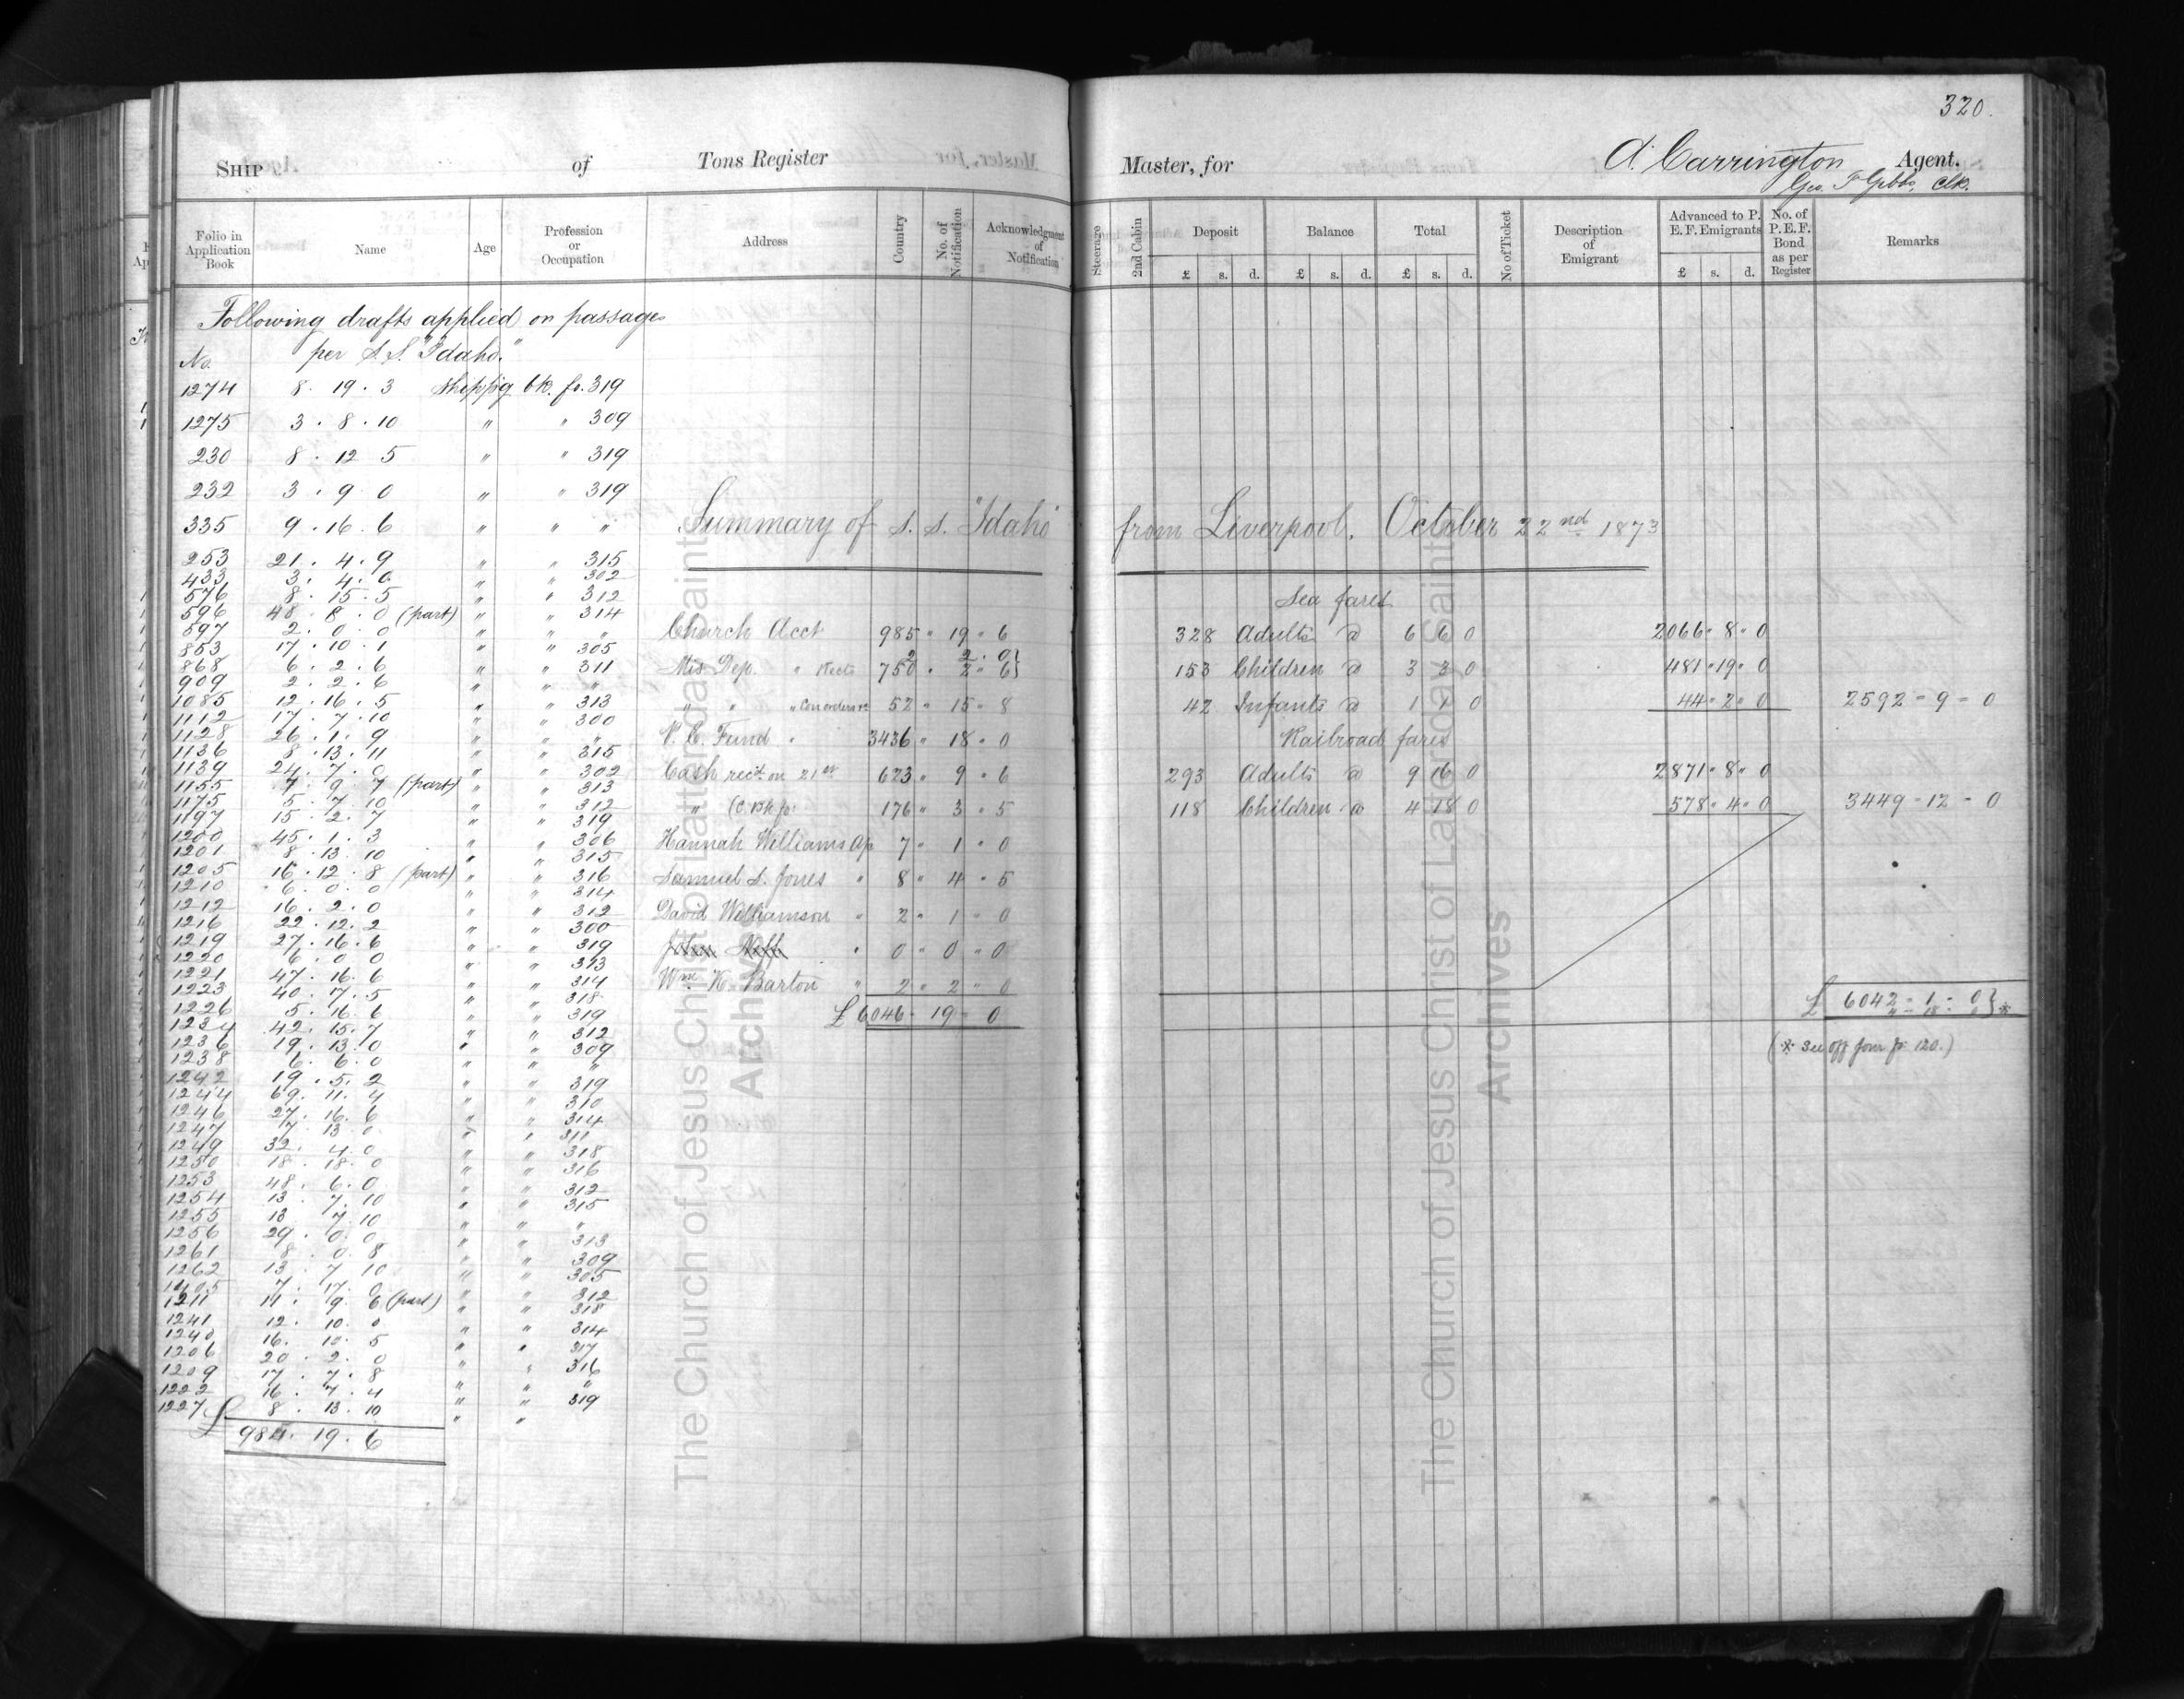 320.
SHIP of Tons Register Master, for
Master, for A. Carrington Agent.
Geo. F Gibbs, Clk.
Folio in Application Book Name Age Profession or Occupation Address Country No. of Notification Acknowledgment of Notification
Steerage 2nd Cabin Deposit Balance Total No of Ticket Description of Emigrant Advanced to P. E. F. Emigrants No. of P. E. F. Bond as per Register Remarks
£ s. d. £ s. d. £ s. d. £ s. d.
Following drafts applied on passages
No. per S. S. "Idaho."
1274 8 . 19 . 3 Shipp'g bk. fo. 319
1275 3 . 8 . 10 " " 309
230 8 . 12 5 " " 319
232 3 . 9 0 " " 319
335 9 . 16 . 6 " " "
253 21 . 4 . 9 " " 315
433 3 . 4 . 0 " " 302
576 8 . 15 . 5 " " 312
596 48 . 8 . 0 (part) " " 314
597 2 . 0 . 0 " " "
853 17 . 10 . 1 " " 305
868 6 . 2 . 6 " " 311
909 2 . 2 . 6 " " "
1085 12 . 16 . 5 " " 313
1112 17 . 7 . 10 " " 300
1128 26 . 1 . 9 " " "
1136 8 . 13 . 11 " " 315
1139 24 . 7 . 0 " " 302
1155 7 . 9 . 7 (part) " " 313
1175 5 . 7 . 10 " " 312
1197 15 . 2 . 7 " " 319
1200 45 . 1 . 3 " " 306
1201 8 . 13 . 10 " " 315
1205 16 . 12 . 8 (part) " " 316
1210 6 . 0 . 0 " " 314
1212 16 . 2 . 0 " " 312
1216 22 . 12 . 2 " " 300
1219 27 . 16 . 6 " " 319
1220 6 . 0 0 " " 313
1221 47 . 16 . 6 " " 314
1223 40 . 7 . 5 " " 318
1226 5 . 16 6 " " 319
1234 42 . 15 . 7 " " 312
1236 19 . 13 . 0 " " 309
1238 6 . 6 . 0 " " "
1242 19 . 5 . 2 " " 319
1244 69 . 11 . 4 " " 310
1246 27 . 16 . 6 " " 314
1247 7 13 0 " " 311
1249 32 . 4 . 0 " " 318
1250 18 . 18 . 0 " " 316
1253 48 . 6 . 0 " " 312
1254 13 . 7 . 10 " " 315
1255 13 7 . 10 " " "
1256 29 . 0 . 0 " " 313
1261 8 . 0 . 8 " " 309
1262 13 . 7 10 " " 305
1405 7 . 17 . 0 " " 312
1211 14 . 9 . 6 (part) " " 318
1241 12 . 10 . 0 " " 314
1240 16 . 10 . 5 " " 317
1206 20 . 2 . 0 " " 316
1209 17 . 7 . 8 " " "
1222 16 . 7 . 4 " " 319
1227 8 . 13 . 10 " "
£ 984 . 19 . 6
Summary of S. S. "Idaho" from Liverpool. October 22nd 1873
Church Acct 985 " 19 " 6
2 2 . 0
Mis Dep. " Rects 750 " 2 " 6
" " " 52 " 15 " 8
P. E. Fund " 3436 " 18 " 0
Cash rec'd on 21st 623 " 9 " 6
" (C. Bk fo: 176 " 3 " 5
Hannah Williams Ap 7 " 1 " 0
Samuel S. Jones " 8 " 4 " 5
David Williamson " 2 " 1 " 0
John Neff " 0 " 0 " 0
Wm. K. Barton " 2 " 2 " 0
£ 6046 " 19 " 0
Sea fares
328 Adults @ 6 6 0 2066 " 8 " 0
153 Children @ 3 3 0 481 " 19 " 0
42 Infants @ 1 1 0 44 " 2 " 0 2592 - 9 - 0
Railroad fares
293 Adults @ 9 16 0 2871 " 8 " 0
118 Children @ 4 18 0 578 " 4 " 0 3449 - 12 - 0
£ 6042 - 1 - 0 } *
4 - 18 - 0
(* See off jour fo 120.)
The Church of Jesus Christ of Latter-day Saints
Archives
The Church of Jesus Christ of Latter-day Saints
Archives